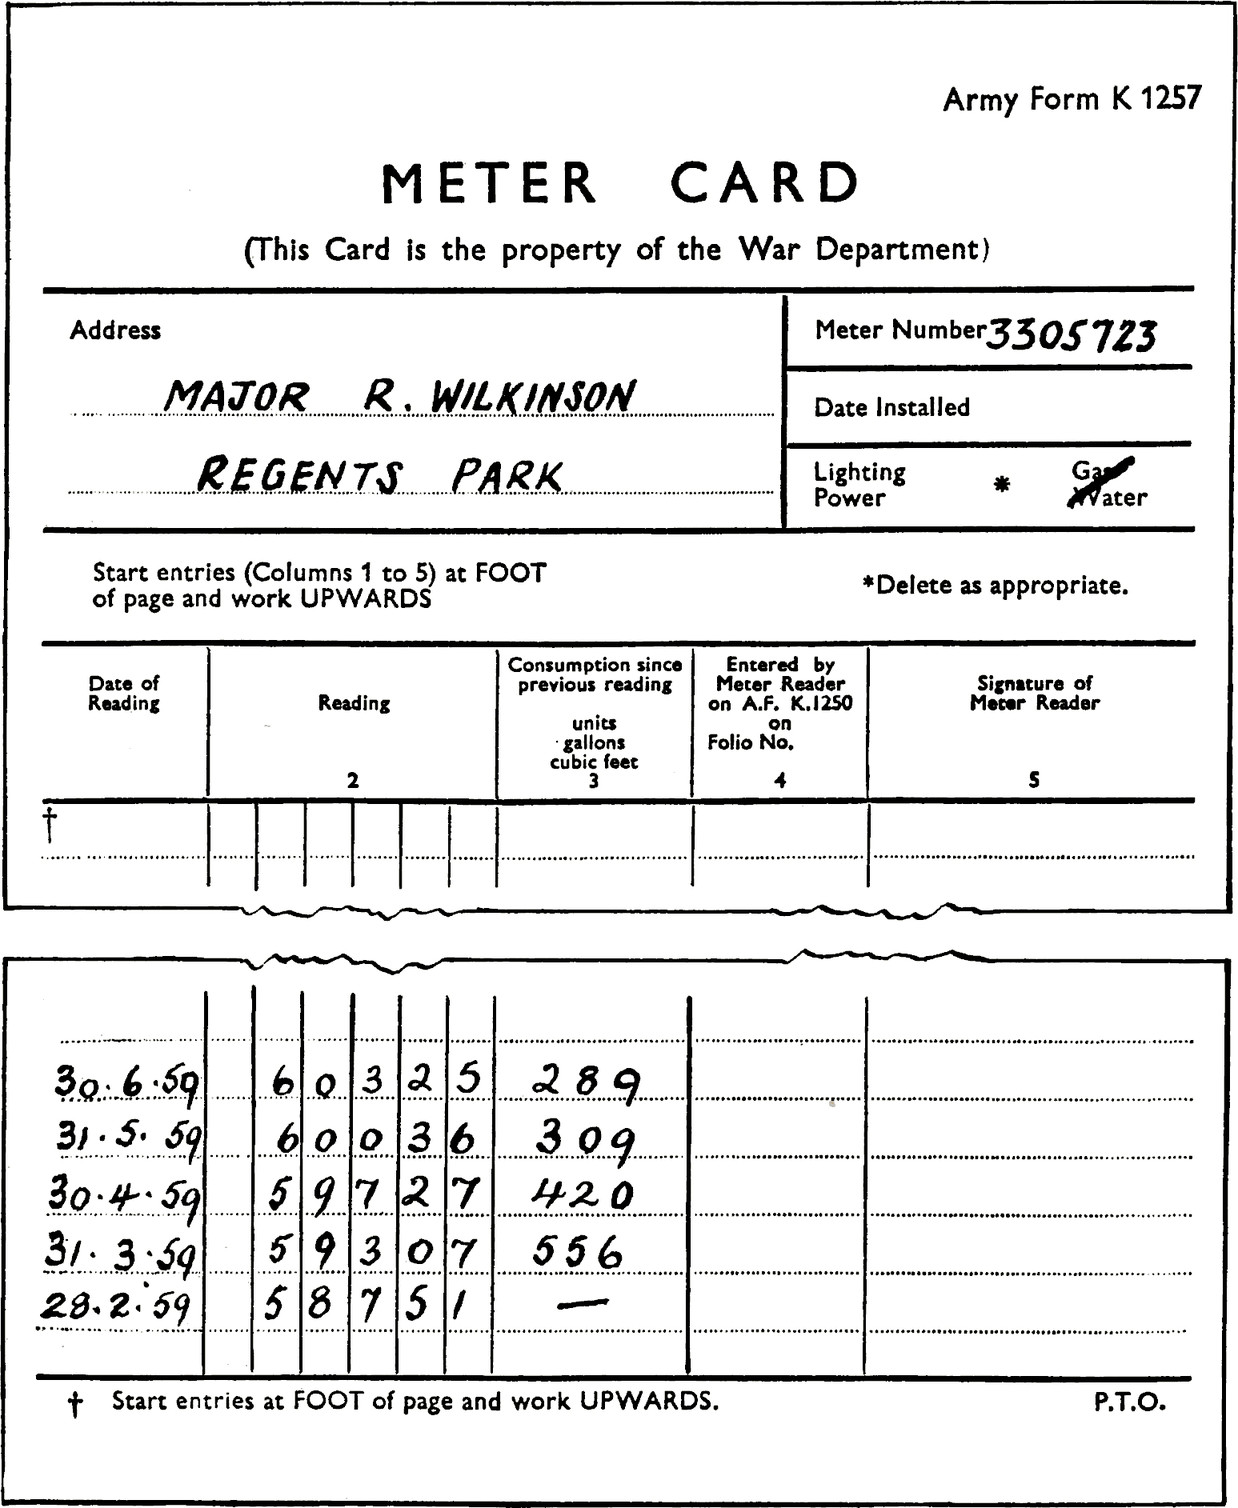 Army Form K 1257
METER CARD
(This Card is the property of the War Department)
Address
MAJOR R. WILKINSON
REGENTS PARK
Meter Number 3305723
Date Installed
Lighting
Power
*
Gas
Water
Start entries (Columns 1 to 5) at FOOT
of page and work UPWARDS
*Delete as appropriate.
Date of
Reading
Reading
2
Consumption since
previous reading
units
gallons
cubic feet
3
Entered by
Meter Reader
on A.F. K.1250
on
Folio No.
4
Signature of
Meter Reader
5
†
30.6.59 60325 289
31.5.59 60036 309
30.4.59 59727 420
31.3.59 59307 556
28.2.59 58751 —
† Start entries at FOOT of page and work UPWARDS.
P.T.O.